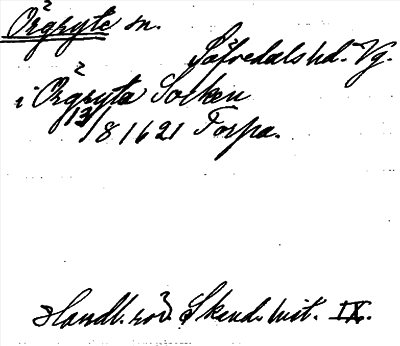 Örgryte sn.
Säfvedals hd. Vg.
i Örgryta Socken
13/8 1621 Torpa.
Handl. rör. Skand. hist. IX.